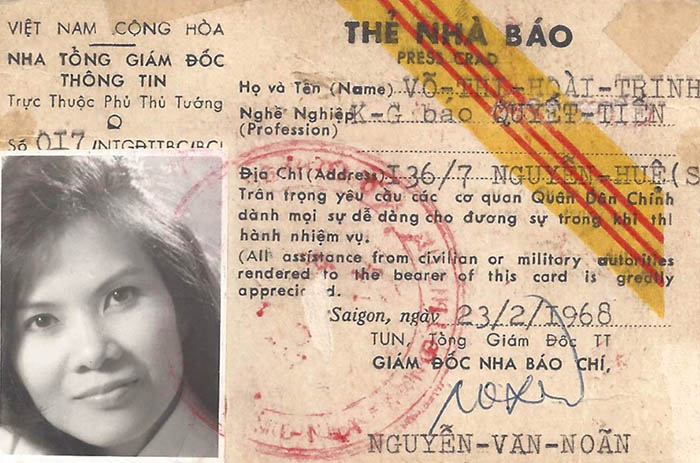 VIỆT NAM CỘNG HÒA
NHA TỔNG GIÁM ĐỐC
THÔNG TIN
Trực Thuộc Phủ Thủ Tướng
Số 017/NTGĐTTBC/BC1
THẺ NHÀ BÁO
PRESS CRAD
Họ và Tên (Name) VÕ-THỊ-HOÀI-TRINH
Nghề Nghiệp K-G báo QUYẾT-TIẾN
(Profession)
Địa Chỉ (Address) I36/7 NGUYỄN-HUỆ(S
Trân trọng yêu cầu các cơ quan Quân Dân Chính
dành mọi sự dễ dàng cho đương sự trong khi thi
hành nhiệm vụ.
(All assistance from civilian or military autorities
rendered to the bearer of this card is greatly
appreciated.
Saigon, ngày 23/2/1968
TUN, Tổng Giám Đốc TT
GIÁM ĐỐC NHA BÁO CHÍ,
NGUYỄN-VAN-NOÃN